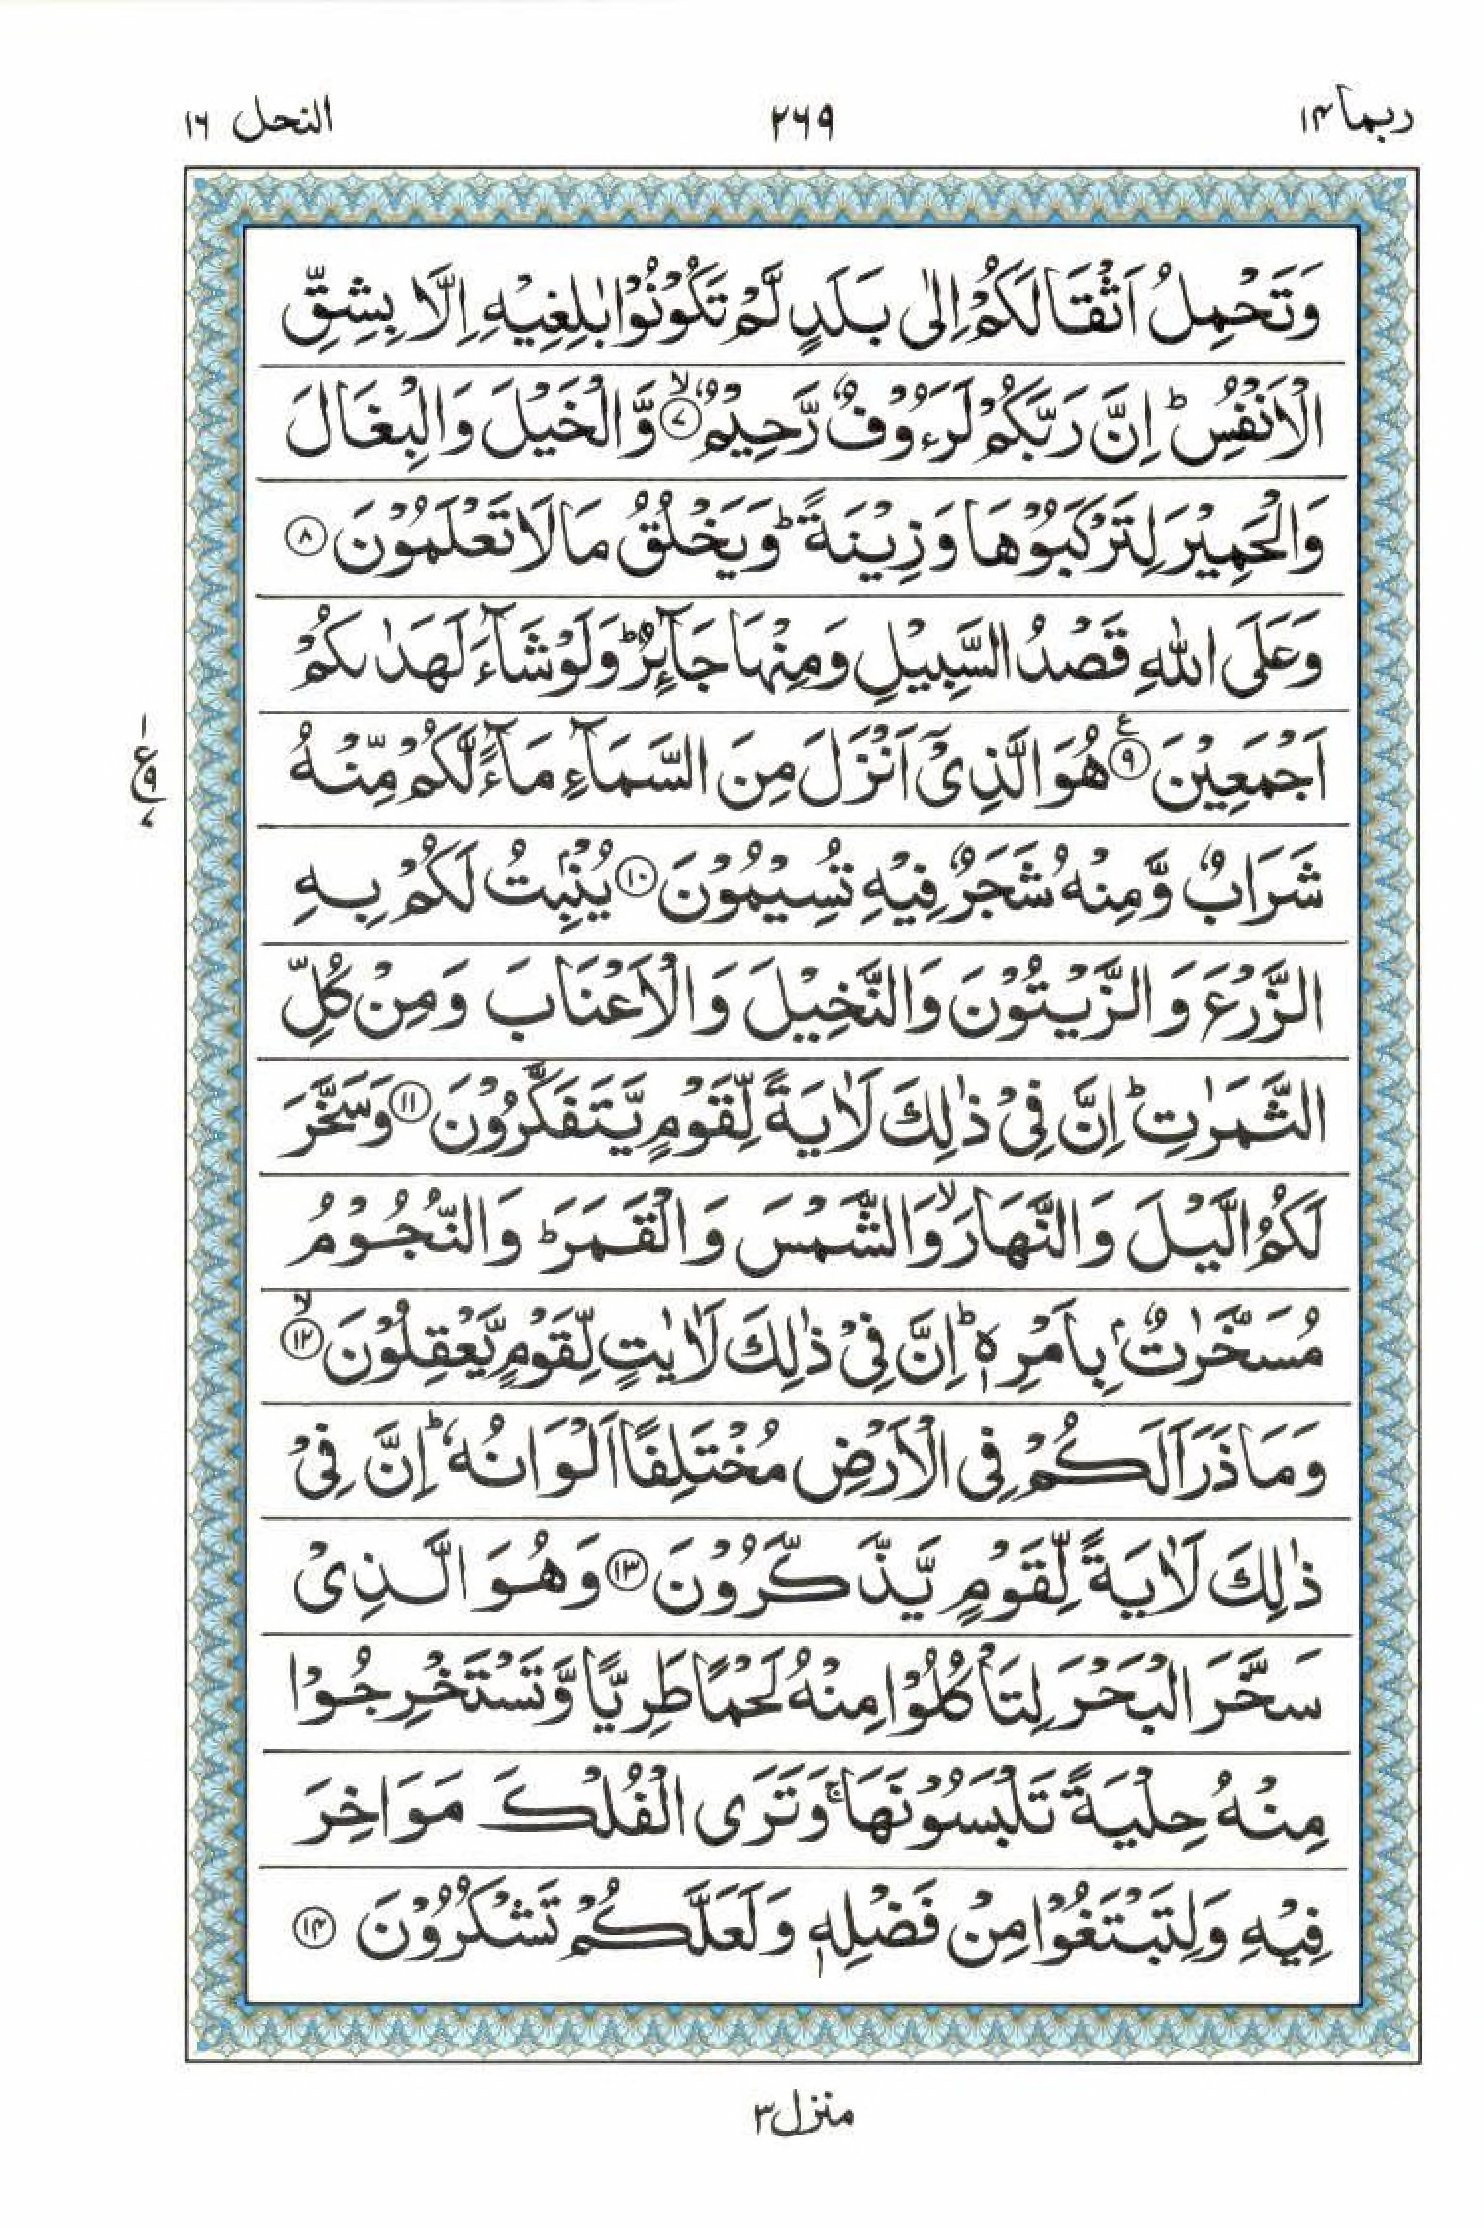 ربما ١۴
٢٦٩
النحل ١٦
وَتَحْمِلُ اَثْقَالَكُمْ اِلٰى بَلَدٍ لَّمْ تَكُوْنُوْا بٰلِغِيْهِ اِلَّا بِشِقِّ
الْاَنْفُسِ ؕ اِنَّ رَبَّكُمْ لَرَءُوْفٌ رَّحِيْمٌ ۙ﴿٧﴾ وَّالْخَيْلَ وَالْبِغَالَ
وَالْحَمِيْرَ لِتَرْكَبُوْهَا وَزِيْنَةً ؕ وَيَخْلُقُ مَا لَا تَعْلَمُوْنَ ﴿٨﴾
وَعَلَى اللّٰهِ قَصْدُ السَّبِيْلِ وَمِنْهَا جَآئِرٌ ؕ وَلَوْ شَآءَ لَهَدٰىكُمْ
اَجْمَعِيْنَ ﴿٩﴾ هُوَ الَّذِىْۤ اَنْزَلَ مِنَ السَّمَآءِ مَآءً لَّكُمْ مِّنْهُ
ع ١ ٩ ٧
شَرَابٌ وَّمِنْهُ شَجَرٌ فِيْهِ تُسِيْمُوْنَ ﴿١٠﴾ يُنْۢبِتُ لَكُمْ بِهِ
الزَّرْعَ وَالزَّيْتُوْنَ وَالنَّخِيْلَ وَالْاَعْنَابَ وَمِنْ كُلِّ
الثَّمَرٰتِ ؕ اِنَّ فِىْ ذٰلِكَ لَاٰيَةً لِّقَوْمٍ يَّتَفَكَّرُوْنَ ﴿١١﴾ وَسَخَّرَ
لَكُمُ الَّيْلَ وَالنَّهَارَ ۙ وَالشَّمْسَ وَالْقَمَرَ ؕ وَالنُّجُوْمُ
مُسَخَّرٰتٌۢ بِاَمْرِهٖ ؕ اِنَّ فِىْ ذٰلِكَ لَاٰيٰتٍ لِّقَوْمٍ يَّعْقِلُوْنَ ۙ﴿١٢﴾
وَمَا ذَرَاَ لَكُمْ فِى الْاَرْضِ مُخْتَلِفًا اَلْوَانُهٗ ؕ اِنَّ فِىْ
ذٰلِكَ لَاٰيَةً لِّقَوْمٍ يَّذَّكَّرُوْنَ ﴿١٣﴾ وَهُوَ الَّذِىْ
سَخَّرَ الْبَحْرَ لِتَاْكُلُوْا مِنْهُ لَحْمًا طَرِيًّا وَّتَسْتَخْرِجُوْا
مِنْهُ حِلْيَةً تَلْبَسُوْنَهَا ۚ وَتَرَى الْفُلْكَ مَوَاخِرَ
فِيْهِ وَلِتَبْتَغُوْا مِنْ فَضْلِهٖ وَلَعَلَّكُمْ تَشْكُرُوْنَ ﴿١۴﴾
منزل ٣